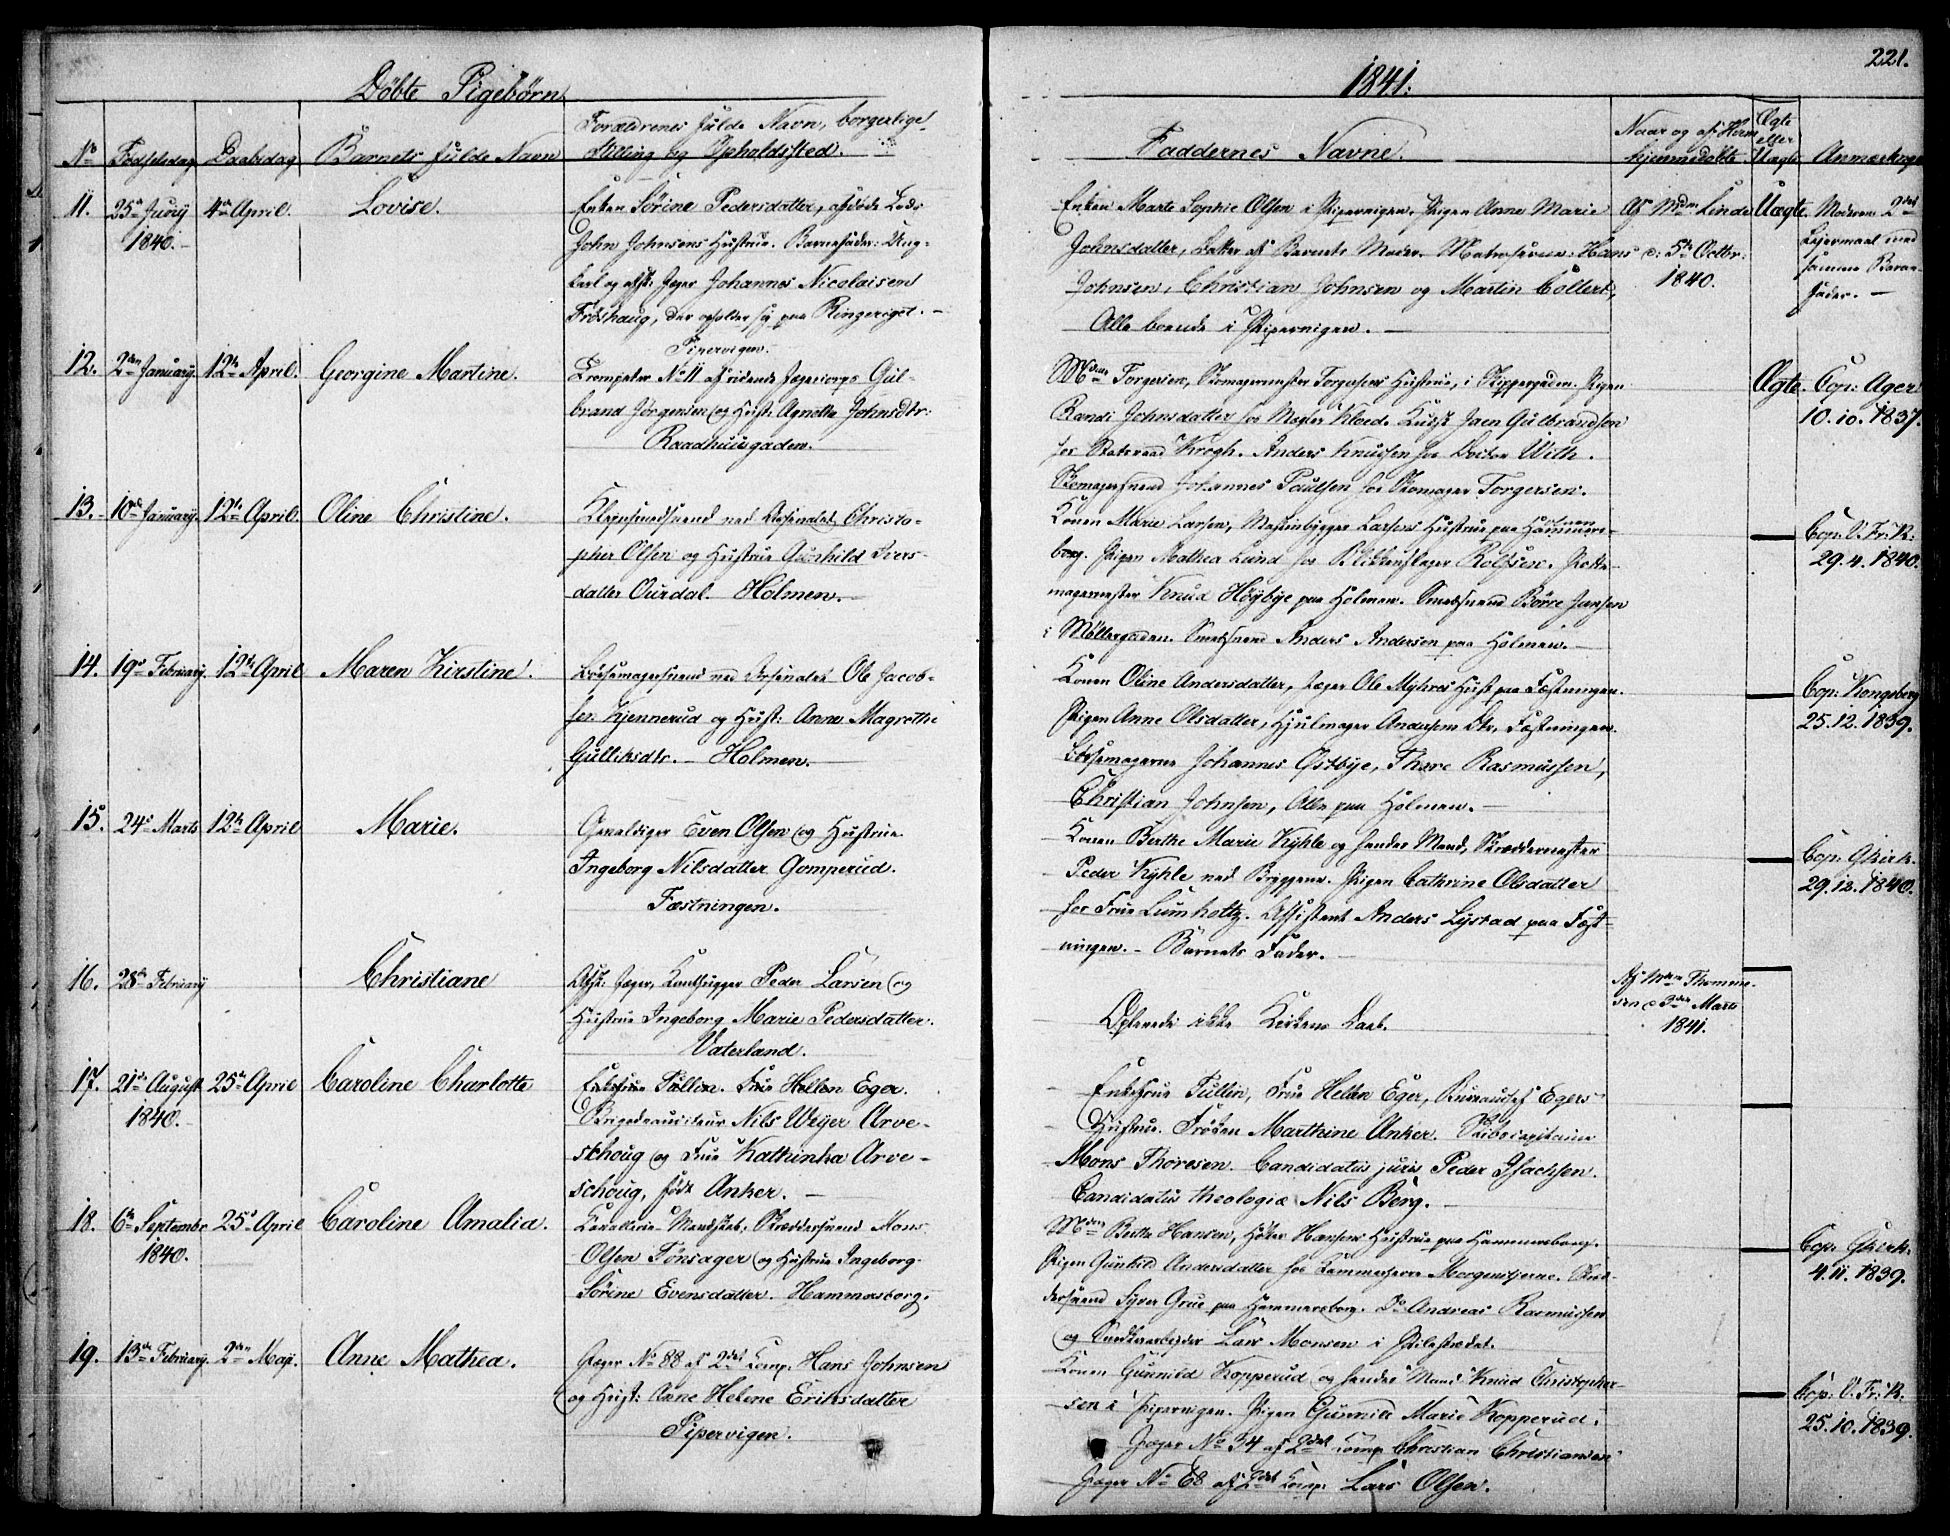 Döbte Pigebørn
1841.
221.
No
Fødselsdag
Daabsdag
Barnets fulde Navn
Forældrenes fulde Navn, borgerlige
Stilling og Opholdssted.
Faddernes Navne.
Naar og af Hvem
hjemmedøbte
Ægte
eller
Uægte
11.
25de Juny
1840.
4de April.
Lovise.
Enken Sörine Pedersdatter, afdøde Lods
John Johnsens Hustrue. Barnefader: Ung-
karl og afsk: Jæger Johannes Nicolaisen
Fröshaug, der opholder sig paa Ringeriget.
Enken Marte Sophie Olsen i Pipervigen. Pigen Anne Marie
Johnsdatter, Datter af Barnets Moder. Matroserne: Hans
Johnsen, Christian Johnsen og Martin Collert,
Alle boende i Pipervigen.
Af Mdm Linde
d: 5te Octbr:
1840.
Uægte
Moderens 2det
Leiermaal med
samme Barne-
fader.
12.
2den January.
12te April.
Georgine Martine.
Pipervigen.
Trompeter No 11 af ridende Jægercorps Gul-
brand Jörgensen og Hust: Agnethe Johnsdtr:
Raadhuusgaden.
Mdme Torgersen, Skomagermester Torgersens Hustrue, i Skippergaden. Pigen
Randi Johnsdatter hos Mægler Kloed. Kudsk Jaen Gulbrandsen
hos Statsraad Krogh. Anders Knudsen hos Doctor With.
Skomagersvend Johannes Paulsen hos Skomager Torgersen.
Ægte.
Cop: Ager
10.10.1837.
13.
10de January.
12te April.
Oline Christine.
Kleinsmedsvend ved Arsenalet Christo-
pher Olsen og Hustrue Gunhild Ivers-
datter Ourdal. Holmen.
Konen Marie Larsen, Maskinbygger Larsens Hustrue paa Hammers-
borg. Pigen Mathea Lund hos Blikkenslager Rolfsen. Potte-
magermester Knud Höybye paa Holmen. Smedsvend Börre Jansen
i Möllergaden. Smedsvend Anders Andersen paa Holmen.
Cop: V. Fr: K:
29.4.1840.
14.
19de February.
12te April
Maren Kirstine.
Bössemagersvend ved Arsenalet Ole Jacob-
sen Kjennerud og Hust: Anne Magrethe
Gulliksdtr. Holmen.
Konen Oline Andersdatter, Jæger Ole Myhres Hust paa Fæstningen.
Pigen Anne Olsdatter, Hjulmager Andersens Dtr, Fæstningen.
Bössemagerne Johannes Östbye, Thore Rasmussen,
Christian Johnsen, Alle paa Holmen.
Cop: Kongsberg
25.12.1839.
15.
24de Marts
12te April
Marie.
Gevaldiger Even Olsen og Hustrue
Ingeborg Nilsdatter Gomperud.
Fæstningen.
Konen Berthe Marie Kyhle og hendes Mand, Skræddermester
Peder Kyhle ved Bryggene. Pigen Cathrine Olsdatter
hos Frue Lumholtz. Assistent Anders Lystad paa Fæst-
ningen. Barnets Fader.
Cop: Gkirk.
29.12.1840.
16.
28de February
Christiane
Afsk: Jæger, Kandhugger Peder Larsen og
Hustrue Ingeborg Marie Pedersdatter.
Vaterland.
Oplevede ikke Kirkens Daab.
Af Mdme Thomme-
sen d 3die Marts
1841.
17.
21de August
1840.
25de April
Caroline Charlotte
Enkefrue Tullin. Frue Hellen Eger.
Brigadeauditeur Nils Weyer Arve-
schoug og Frue Kathinka Arve-
schoug, född Anker.
Enkefrue Tullin, Frue Hellen Eger, Bureauchef Egers
Hustrue. Fröken Marthine Anker. Skibscapitaine
Mons Thoresen. Candidatus juris Peder Isachsen.
Candidatus theologiæ Nils Berg.
18.
6te Septembr
1840.
25de April
Caroline Amalia.
Cavallerie-Mandskab; Skræddersvend Mons
Olsen Tönsager og Hustrue Ingeborg
Sörine Evensdatter. Hammersborg.
Mdme Berthe Hansen, Höker Hansens Hustrue paa Hammersborg.
Pigen Gunhild Andersdatter hos Kammerherre Morgenstjerne. Skræd-
dersvend Syver Grue paa Hammersborg. Do Andreas Rasmussen
og Snedkerarbejder Lars Monsen i Pilestrædet.
Cop: Gkirk.
4.11.1839.
19.
13de February.
2den Maji.
Anne Mathea.
Jæger No 88 af 2det Comp. Hans Johnsen
og Hust: Anne Helene Eriksdatter
Pipervigen.
Konen Gunnild Kopperud og hendes Mand Knud Christopher-
sen i Pipervigen. Pigen Gunnild Marie Kopperud.
Jæger No 34 af 2det Comp Christian Christiansen
Jæger No 68 af 2det Comp: Lars Olsen.
Cop: V. Fr: K:
25.10.1839.